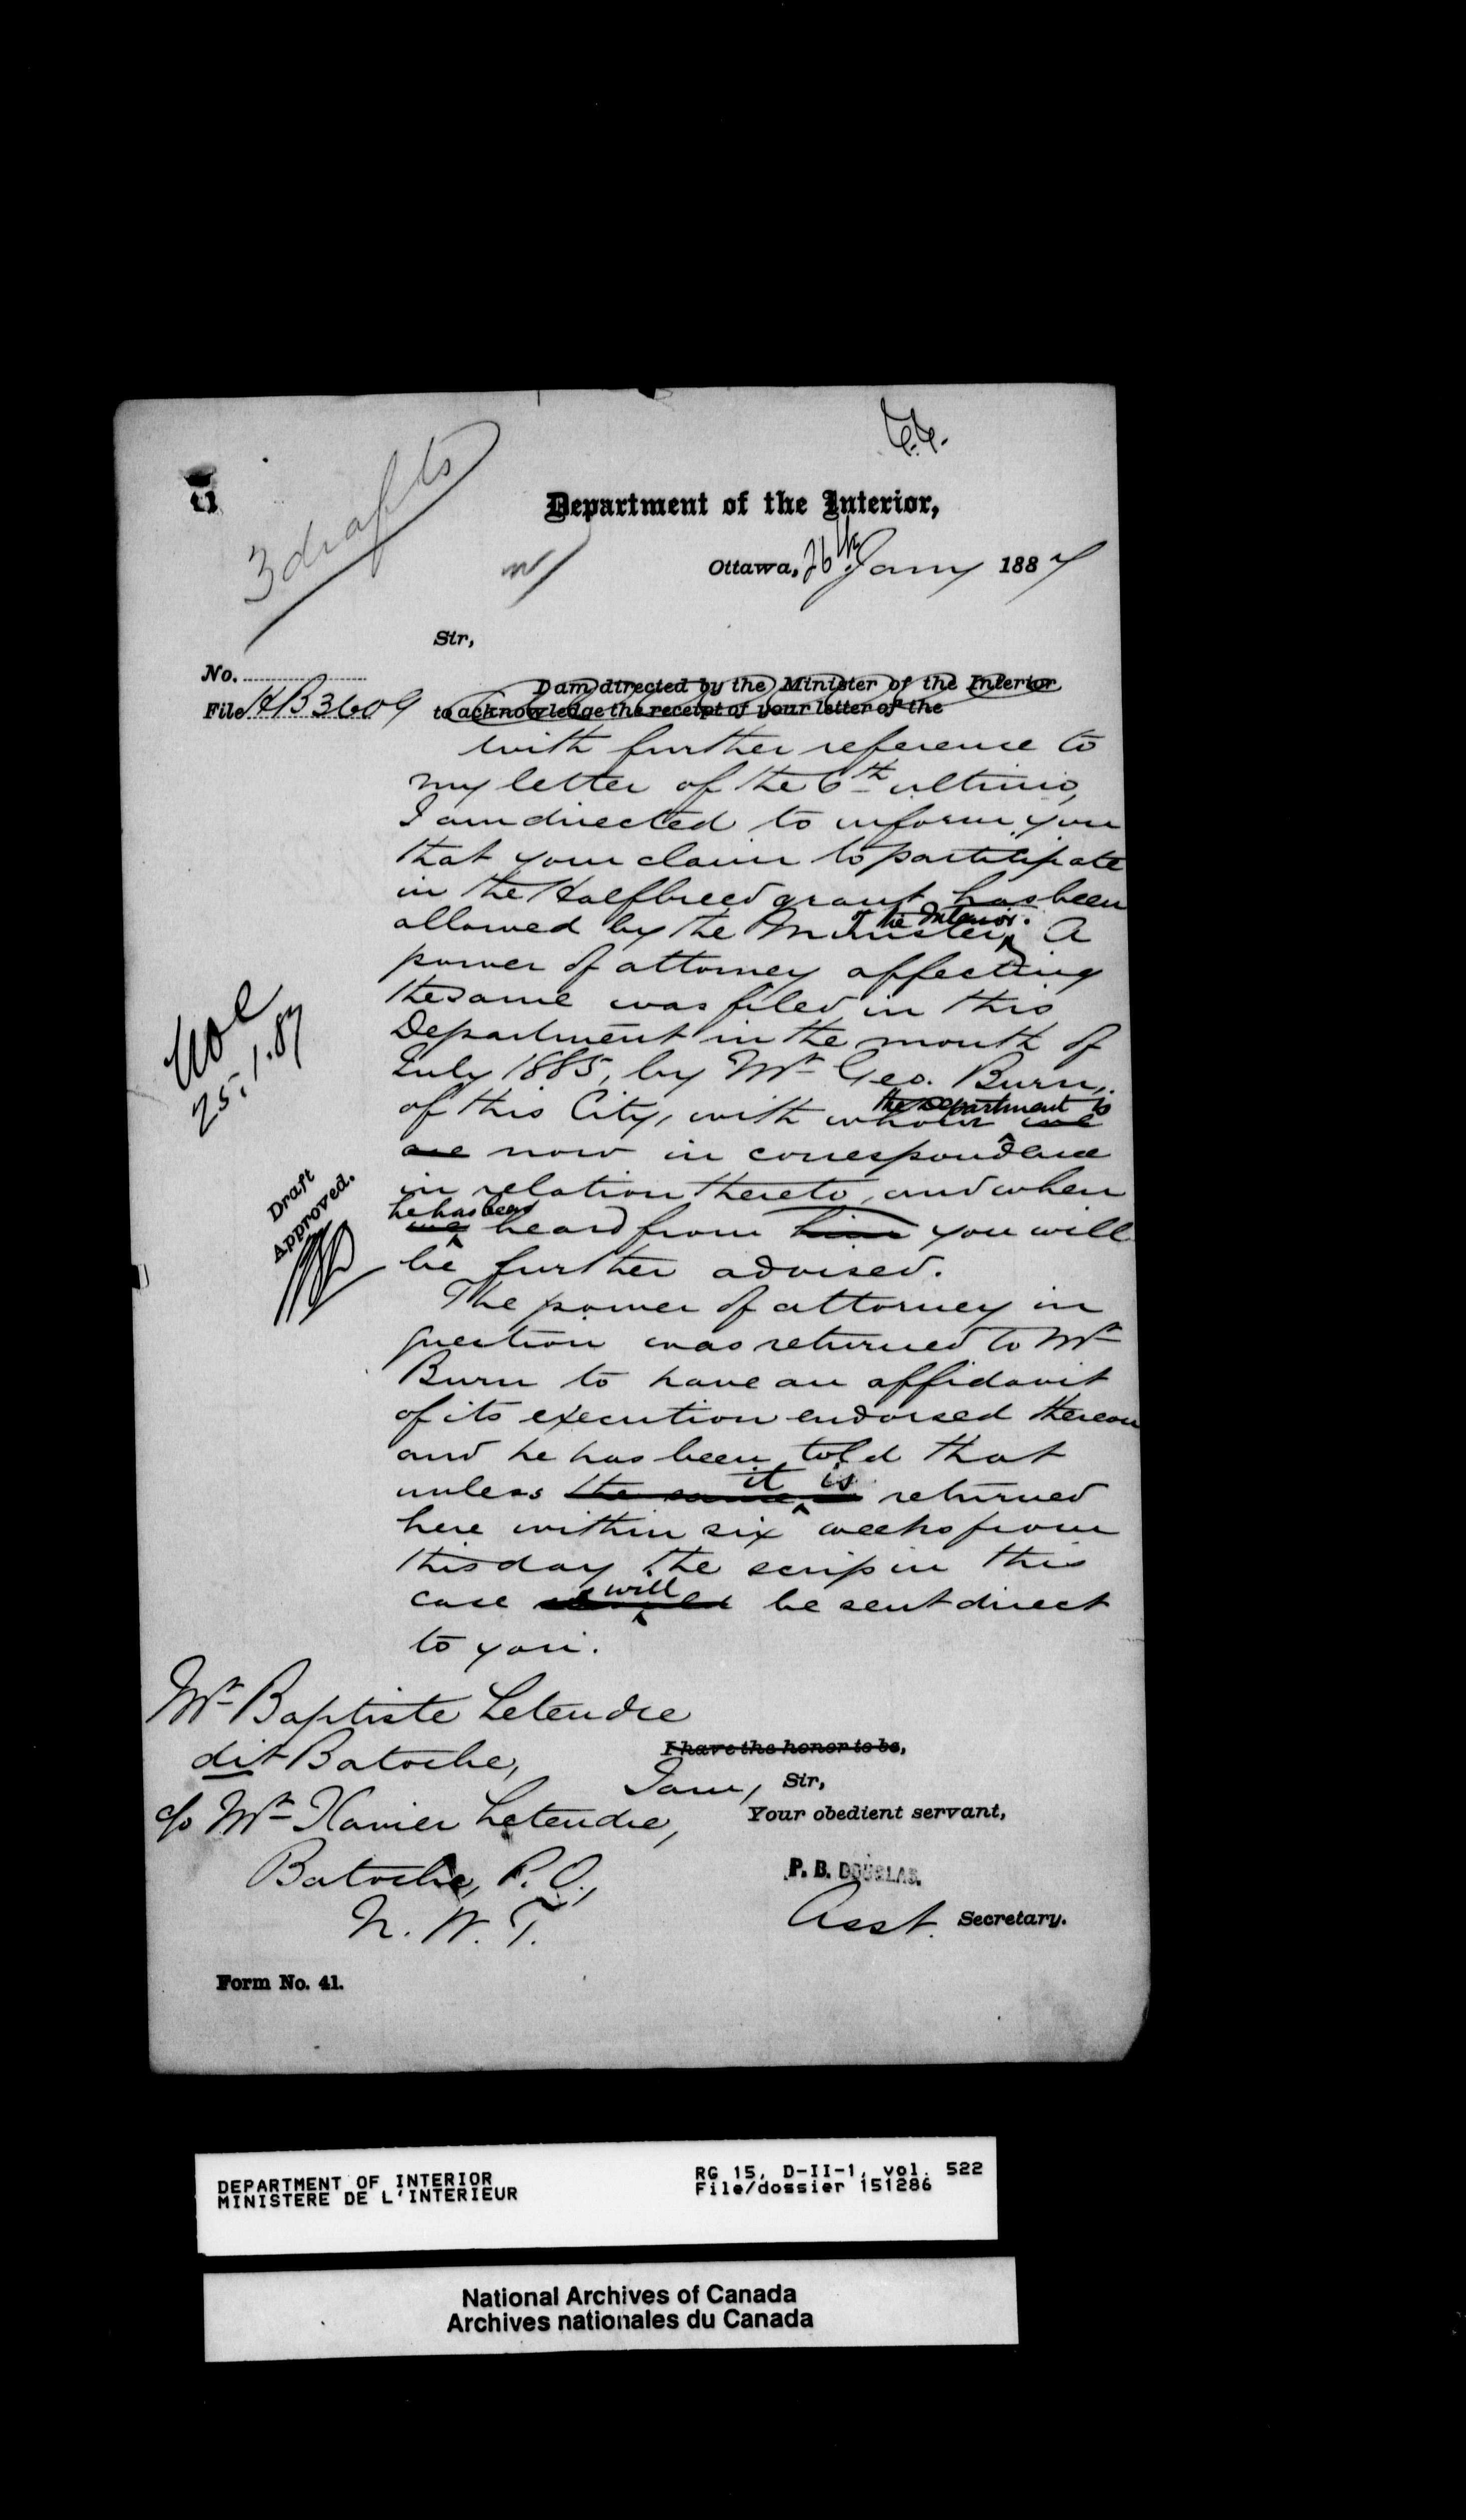 3 drafts
Department of the Interior,
Ottawa, 26th Jany 1887
Sir,
No.
File HB 3609
I am directed by the Minister of the Interior
to acknowledge the receipt of your letter of the
With further reference to
my letter of the 6th ultimo,
I am directed to inform you
that your claim to participate
in the Halfbreed grant has been
of the Interior.
allowed by the Minister A
power of attorney affecting
the same was filed in this
Department in the month of
July 1885, by Mr Geo. Burn,
the Department is
of this City, with whom we
are now in correspondence
in relation thereto, and when
he has been
we heard from him you will
be further advised.
The power of attorney in
question was returned to Mr
Burn to have an affidavit
of its execution endorsed thereon
and he has been told that
it is
unless the same is returned
here within six weeks from
this day the scrip in this
will
case would be sent direct
to you.
25.1.87
Draft
Approved.
Mr Baptiste Letendre
dit Batoche,
c/o Mr Xavier Letendre,
Batoche, P.O.,
N. W. T.
I have the honor to be,
I am, Sir,
Your obedient servant,
P. B. DOUGLAS.
Asst. Secretary.
Form No. 41.
DEPARTMENT OF INTERIOR
MINISTERE DE L'INTERIEUR
RG 15, D-II-1, vol. 522
File/dossier 151286
National Archives of Canada
Archives nationales du Canada